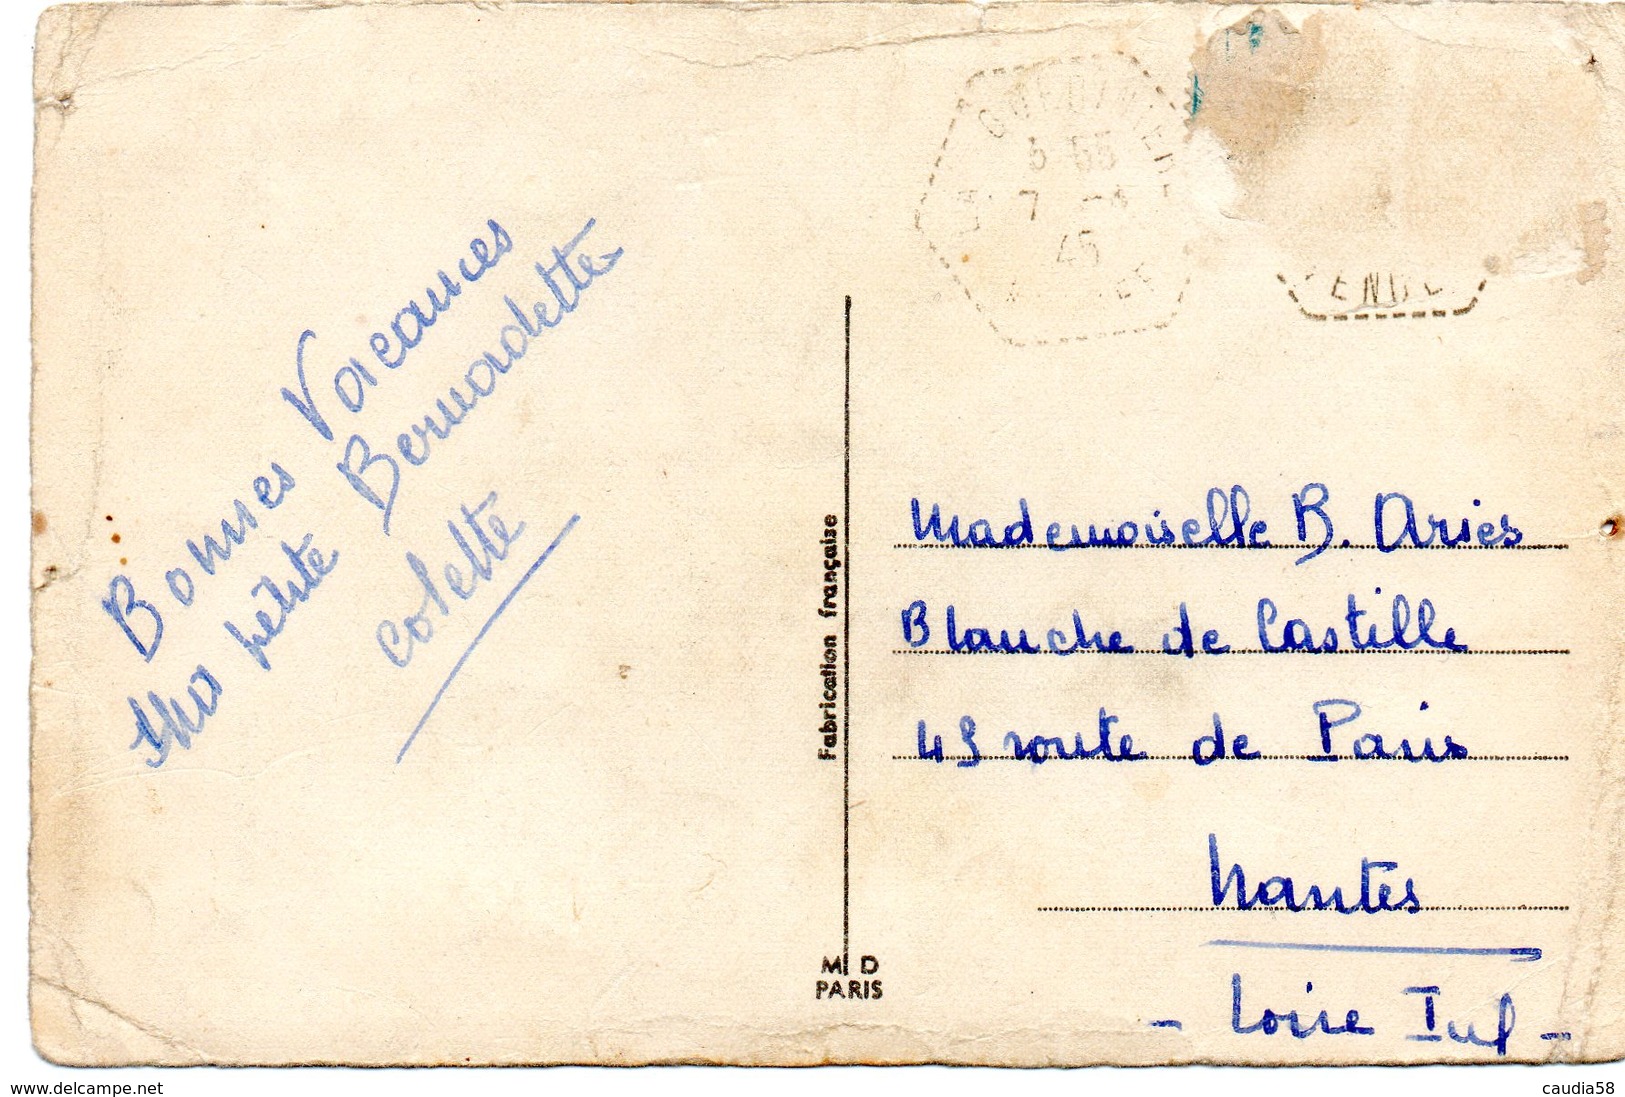 Bonnes Vacances
Ma petite Bernadette
Colette
LA GUERINIERE
45
VENDEE
Fabrication française
M D
PARIS
Mademoiselle B. Aries
Blanche de Castille
43 route de Paris
Nantes
- Loire Inf -
www.delcampe.net
caudia58